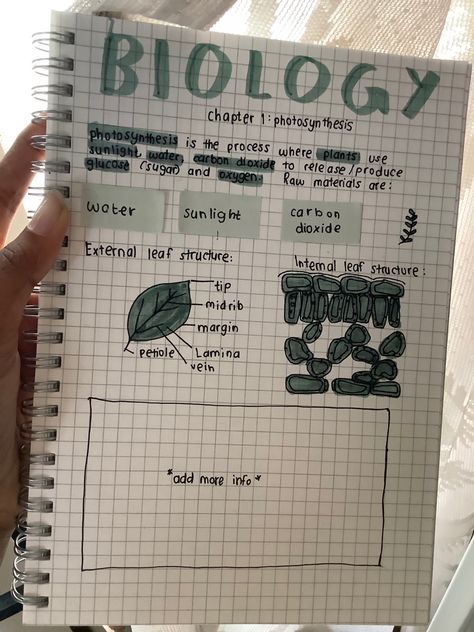 BIOLOGY
chapter 1: photosynthesis
photosynthesis is the process where plants use
sunlight, water, carbon dioxide to release/produce
glucose (sugar) and oxygen. Raw materials are:
water
sunlight
carbon
dioxide
External leaf structure:
Internal leaf structure:
tip
midrib
margin
Lamina
petiole
vein
*add more info*